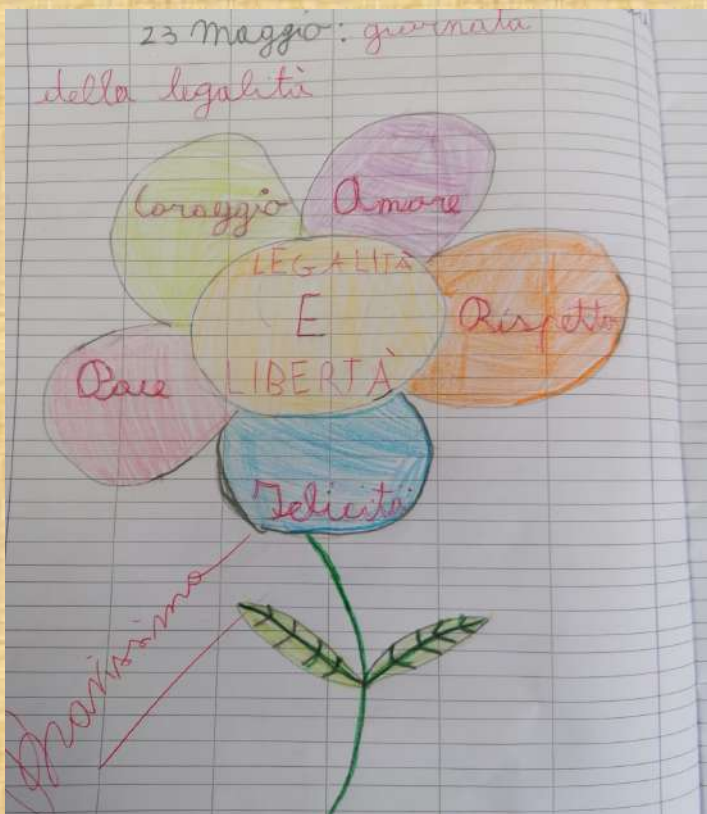 23 Maggio: giornata
della legalità
Coraggio
Amore
LEGALITÀ
E
LIBERTÀ
Rispetto
Pace
Felicità
Bravissimo